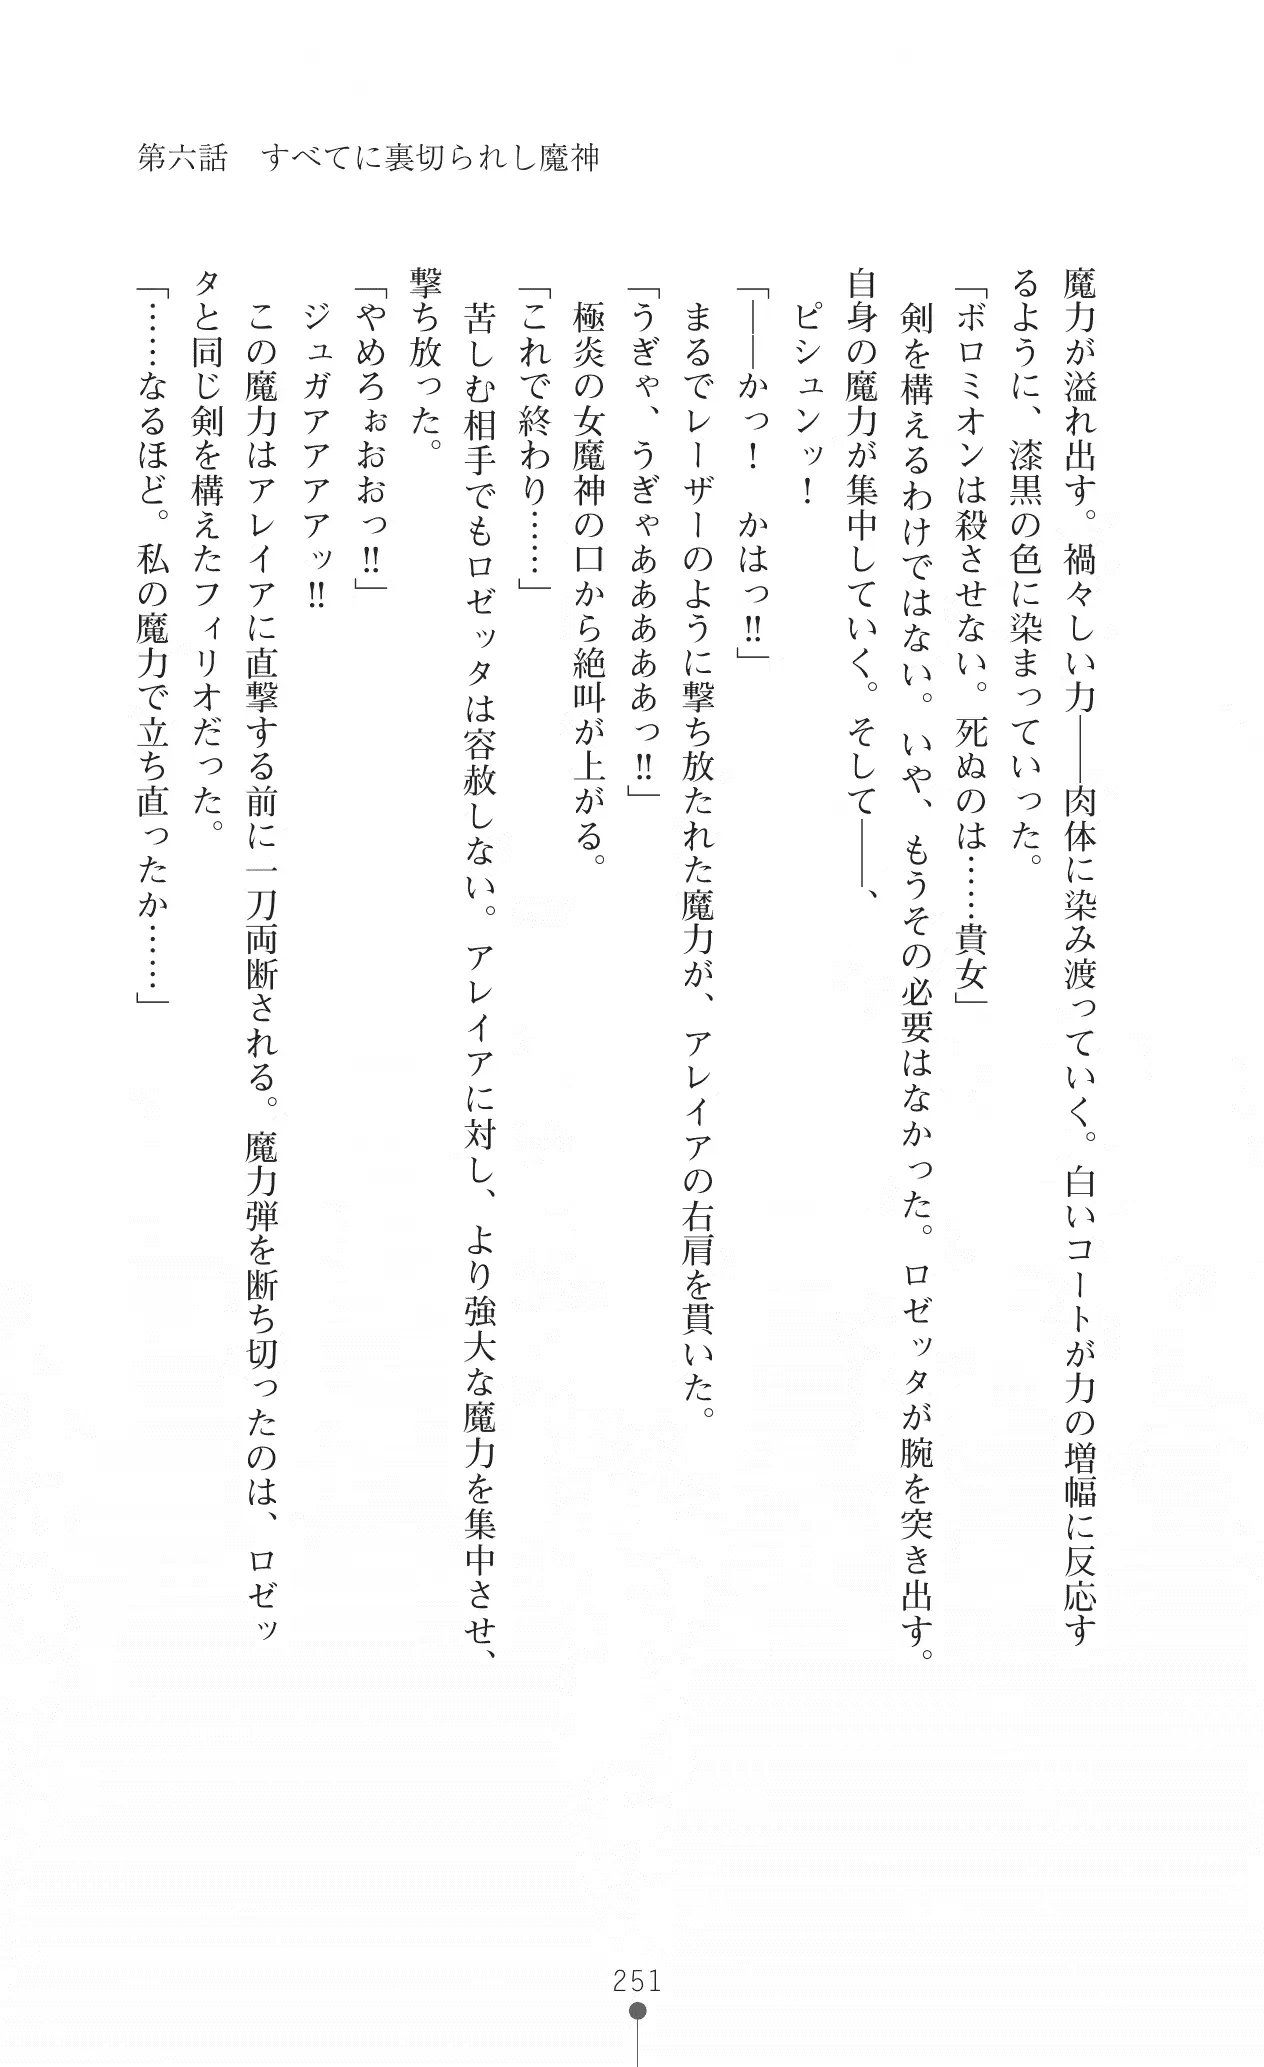 第六話　すべてに裏切られし魔神
魔力が溢れ出す。禍々しい力――肉体に染み渡っていく。白いコートが力の増幅に反応す
るように、漆黒の色に染まっていった。
「ボロミオンは殺させない。死ぬのは……貴女」
　剣を構えるわけではない。いや、もうその必要はなかった。ロゼッタが腕を突き出す。
自身の魔力が集中していく。そして――、
　ピシュンッ！
「――かっ！　かはっ‼」
　まるでレーザーのように撃ち放たれた魔力が、アレイアの右肩を貫いた。
「うぎゃ、うぎゃああああぁっ‼」
　極炎の女魔神の口から絶叫が上がる。
「これで終わり……」
　苦しむ相手でもロゼッタは容赦しない。アレイアに対し、より強大な魔力を集中させ、
撃ち放った。
「やめろぉおおっ‼」
　ジュガアアアアッ‼
　この魔力はアレイアに直撃する前に一刀両断される。魔力弾を断ち切ったのは、ロゼッ
タと同じ剣を構えたフィリオだった。
「……なるほど。私の魔力で立ち直ったか……」
251